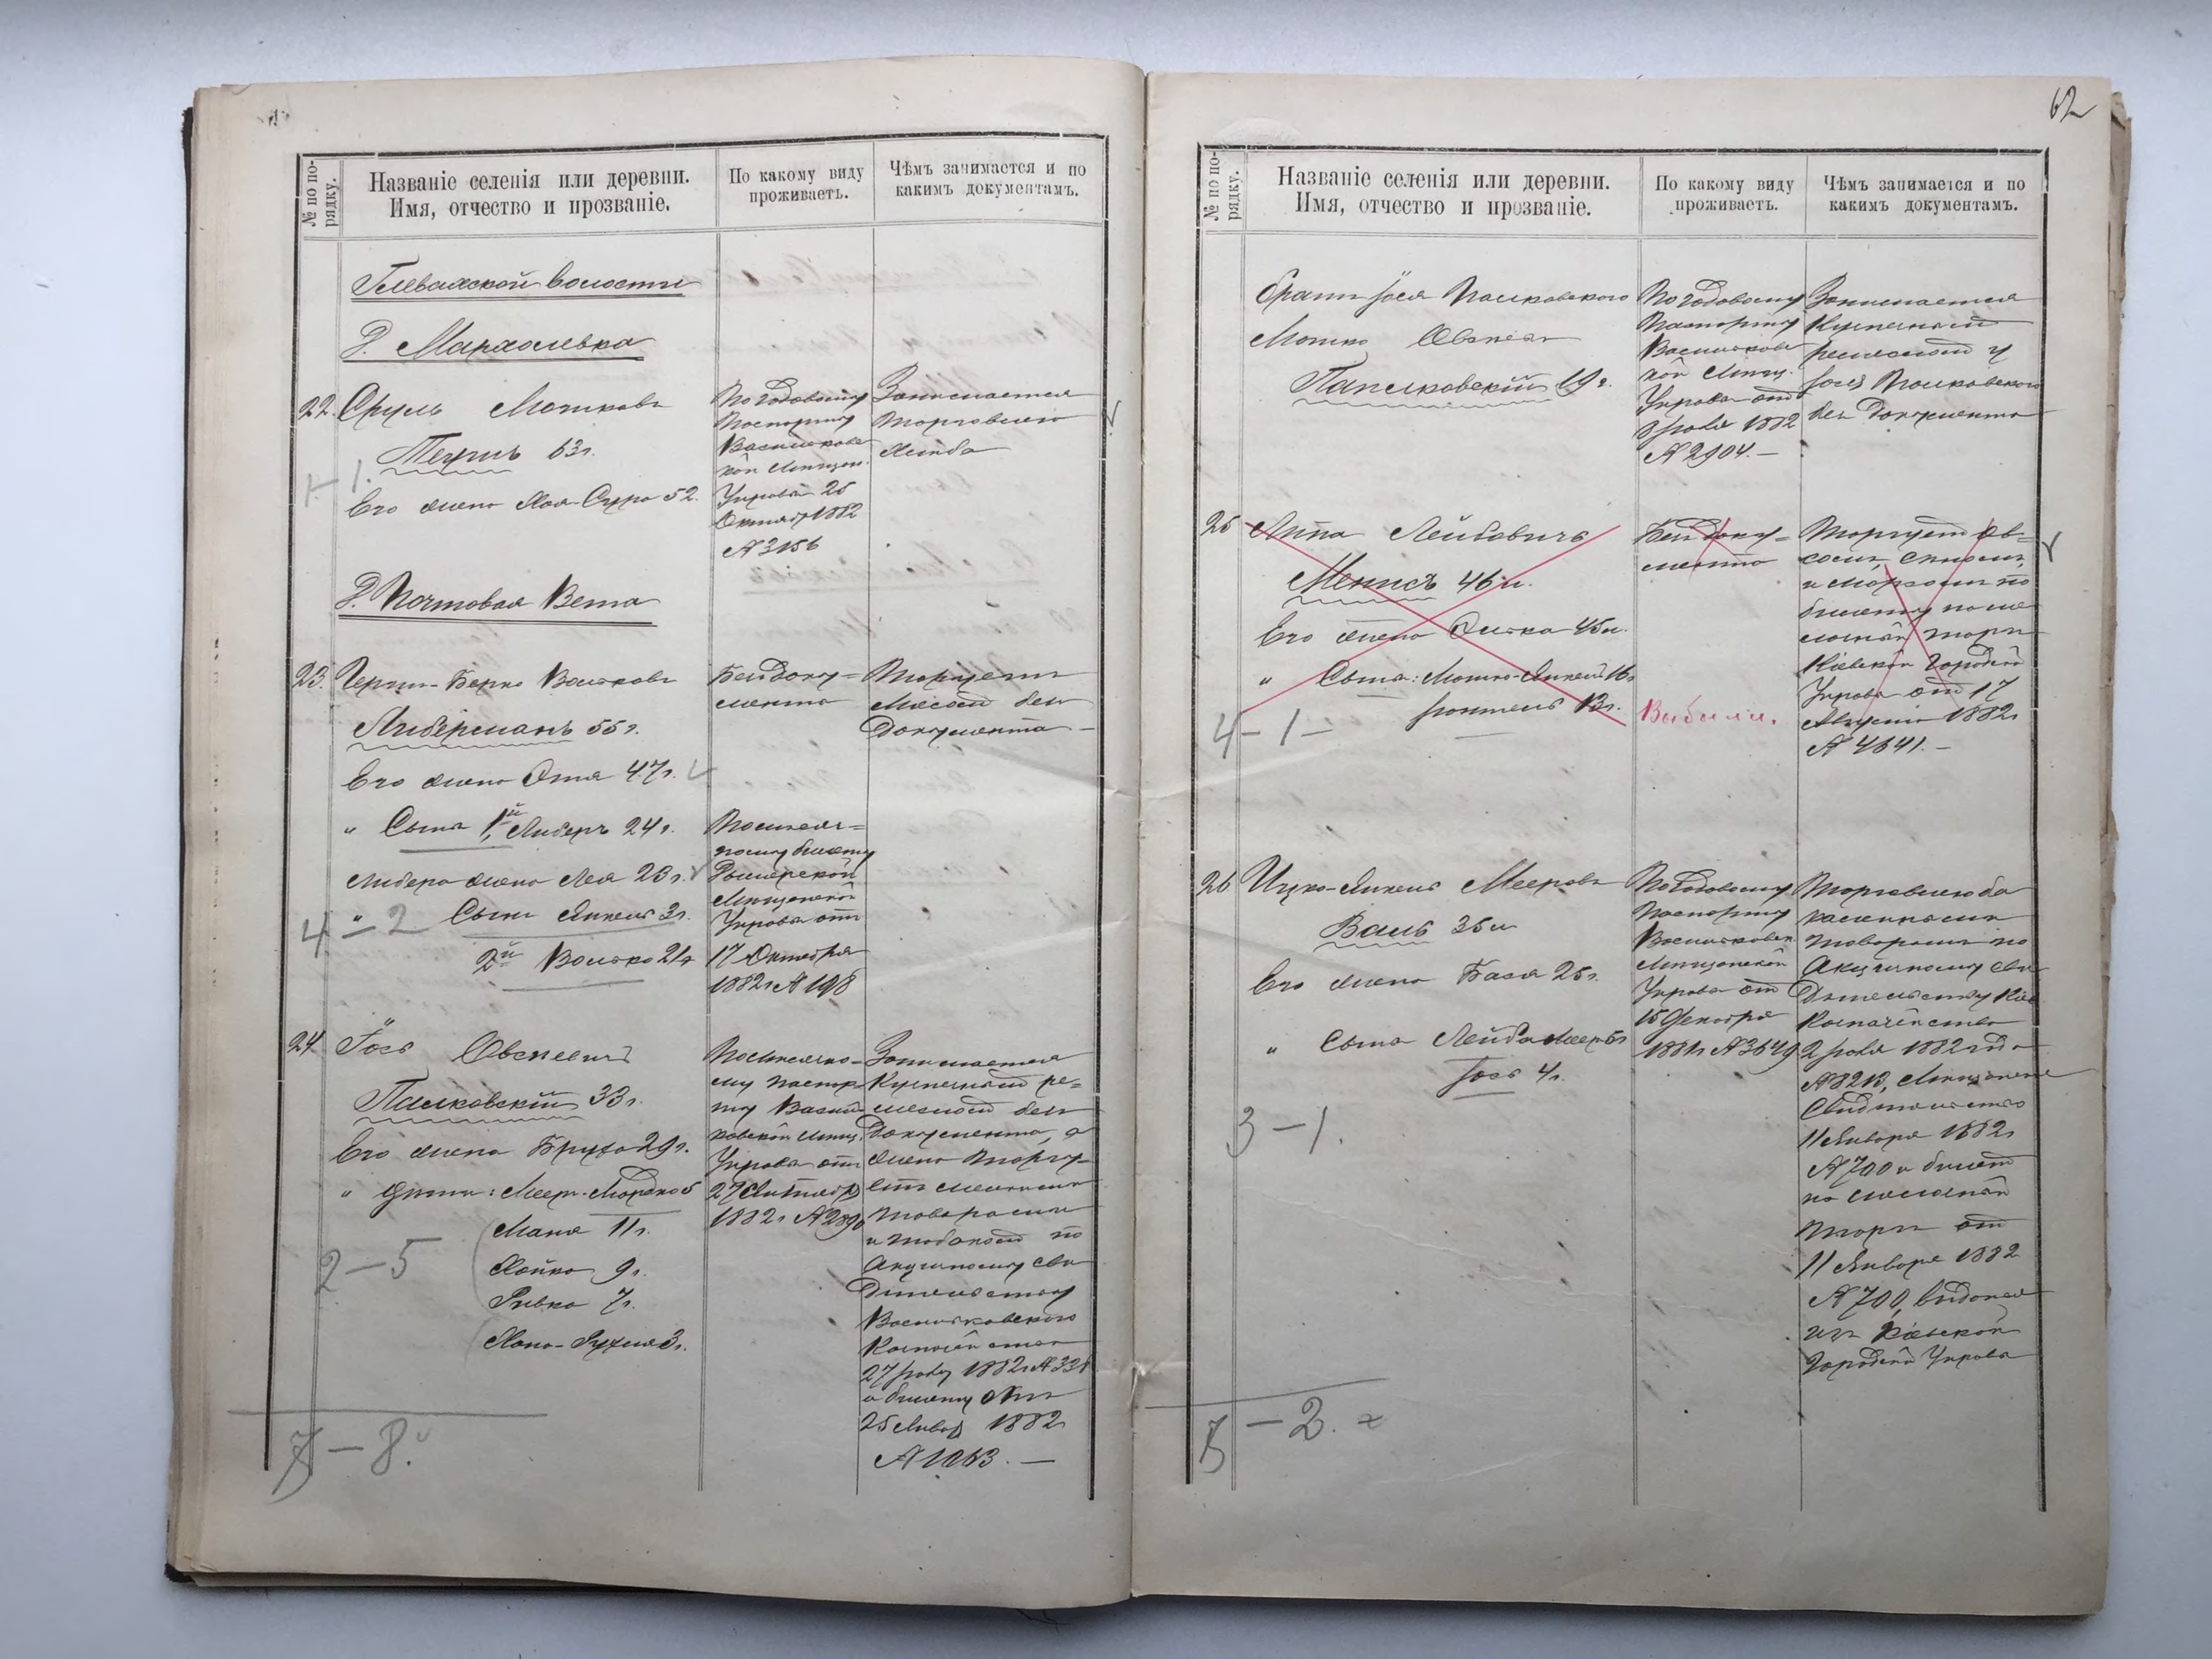 № по по-
рядку.
Названіе селенія или деревни.
Имя, отчество и прозваніе.
По какому виду
проживаетъ.
Чѣмъ занимается и по
какимъ документамъ.
Глевахской волости
Д. Мархолевка
22. Сруль Мошковъ
63 г.
1 – 1.
Его жена Хая-Сура 52.
По годовому
паспорту
Васильковс
кой мѣщан.
Управы 25
Октяб 1882
№ 3156
Занимается
торговлею
хлѣба
Д. Почтовая Вета
23. Герш-Берко Вольковъ
Либерманъ 55 г.
Его жена Этя 47 г.
" Сына 1й, Либеръ 24 г.
Либера жена Лея 23 г.
" Сынъ Янкель 3 г.
4 – 2
2й Волько 21 г
Без доку=
мента
Торгуетъ
Мясом без
Документа –
Полугод=
ному билету
Мѣщанской
Управы отъ
17 Октября
1882 г № 198
24. Іось Овсеевичъ
Палковскій 33 г.
Его жена Бруха 29 г.
" дѣти: Меер-Мордко 5
Маня 11 г.
Хайка 9 г.
Ривка 7 г.
Хана-Рухля 3 г.
2 – 5
му паспор-
ту Василь
ковской мѣщ.
Управы отъ
27 Сентябр
1882 г № 2890
Занимается
Кузнечным ре=
меслом без
Документа, а
жена торгу-
етъ мелочными
товарами
и табаком по
Акцизному сви
дѣтельству
Васильковского
Казначейства
27 1882 г № 338
и билету
25 Январ 1882 г
№ 1063. –
7 – 8.
62
№ по по-
рядку.
Названіе селенія или деревни.
Имя, отчество и прозваніе.
По какому виду
проживаетъ.
Чѣмъ занимается и по
какимъ документамъ.
Братъ Іося Палковского
Мошко Овсеев
Палковскій 19 г.
По годовому
паспорту
Васильковс
кой мѣщ.
Управы от
1882
№ 2904. –
Занимается
Кузнечным
ремеслом у
Іося Палковского
без документа
25 Липа Лейбовичъ
46 л.
Его жена 45 л.
" Сына: Мошко-Янкель 16 г
13 г.
4 – 1 –
Без доку=
мента
Выбыли.
Торгует Ов=
сом, сѣном,
билету на ме
лочный торг
Кіевской Городской
Управы от 17
Августа 1882 г
№ 4641. –
26 Ицко-Янкель Мееровъ
Валь 35 л
Его жена Бася 25 г.
" Сына Лейба-Меер 5 г
Іось 4 г.
3 – 1.
По годовому
паспорту
Васильковск
Мѣщанской
Управы от
15 Декабря
1881 г № 3649
Торговлею ба
калейными
товарами по
Акцизному сви
дѣтельству Кіев
Казначейства
2 1882 года
№ 8213, Мѣщанское
Свидѣтельство
11 Января 1882 г
№ 700 и билет
на мелочный
торг от
11 Января 1882
№ 700, выданы
из Кіевской
Городской Управы
5 – 2.